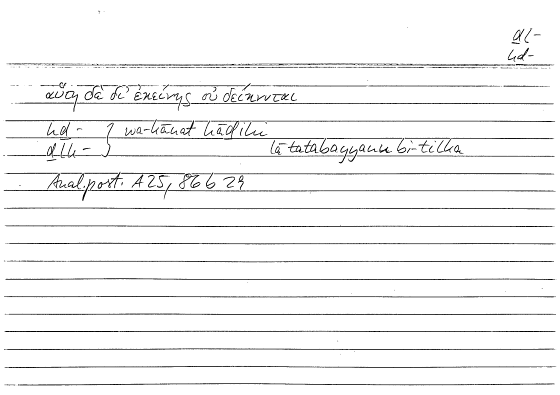 ḏl-
hḏ-
αὕτη δὲ δι' ἐκείνης οὐ δείκνυται
hḏ- } wa-kānat hāḏihi
ḏlk- } lā tatabayyanu bi-tilka
Anal. post. A 25, 86 b 29